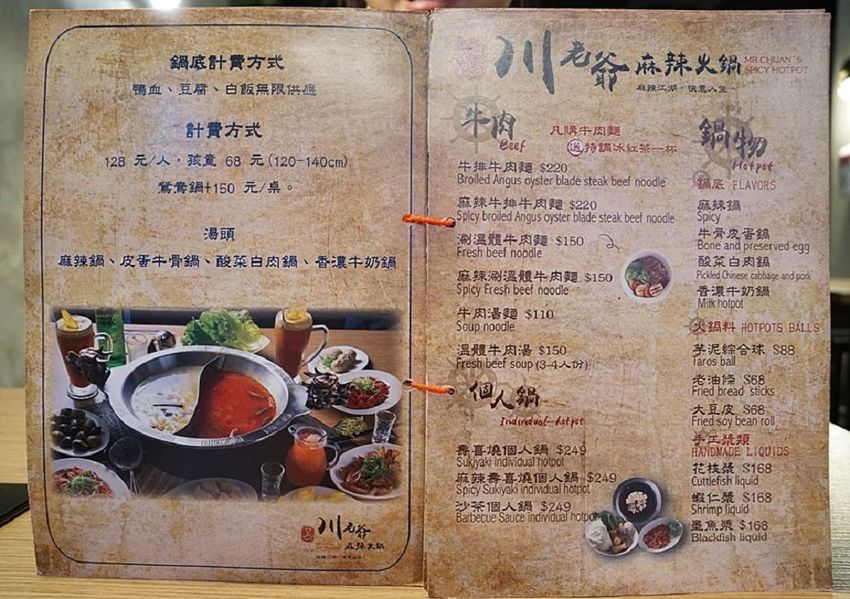 鍋底計費方式
鴨血、豆腐、白飯無限供應
計費方式
128 元/人，孩童 68 元(120-140cm)
鴛鴦鍋+150 元/桌。
湯頭
麻辣鍋、皮蛋牛骨鍋、酸菜白肉鍋、香濃牛奶鍋
川老爺
麻辣火鍋
川老爺 麻辣火鍋 MR.CHUAN'S SPICY HOTPOT
麻辣江湖，快意人生
牛肉
Beef
凡購牛肉麵
送 特調冰紅茶一杯
牛排牛肉麵 $220
Broiled Angus oyster blade steak beef noodle
麻辣牛排牛肉麵 $220
Spicy broiled Angus oyster blade steak beef noodle
涮溫體牛肉麵 $150
Fresh beef noodle
麻辣涮溫體牛肉麵 $150
Spicy Fresh beef noodle
牛肉湯麵 $110
Soup noodle
溫體牛肉湯 $150
Fresh beef soup (3-4人份)
個人鍋
Individual hotpot
壽喜燒個人鍋 $249
Sukiyaki individual hotpot
麻辣壽喜燒個人鍋 $249
Spicy Sukiyaki individual hotpot
沙茶個人鍋 $249
Barbecue Sauce individual hotpot
鍋物
Hotpot
鍋底 FLAVORS
麻辣鍋
Spicy
牛骨皮蛋鍋
Bone and preserved egg
酸菜白肉鍋
Pickled Chinese cabbage and pork
香濃牛奶鍋
Milk hotpot
火鍋料 HOTPOTS BALLS
芋泥綜合球 $88
Taros ball
老油條 $68
Fried bread sticks
大豆皮 $68
Fried soy bean roll
手工漿類
HANDMADE LIQUIDS
花枝漿 $168
Cuttlefish liquid
蝦仁漿 $168
Shrimp liquid
墨魚漿 $168
Blackfish liquid